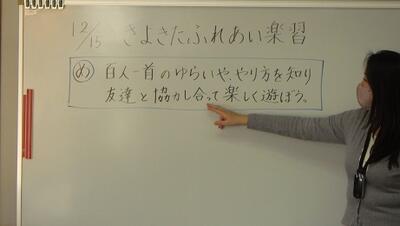 12/15 きよきたふれあい楽習
め 百人一首のゆらいや、やり方を知り
友達と協力し合って楽しく遊ぼう。